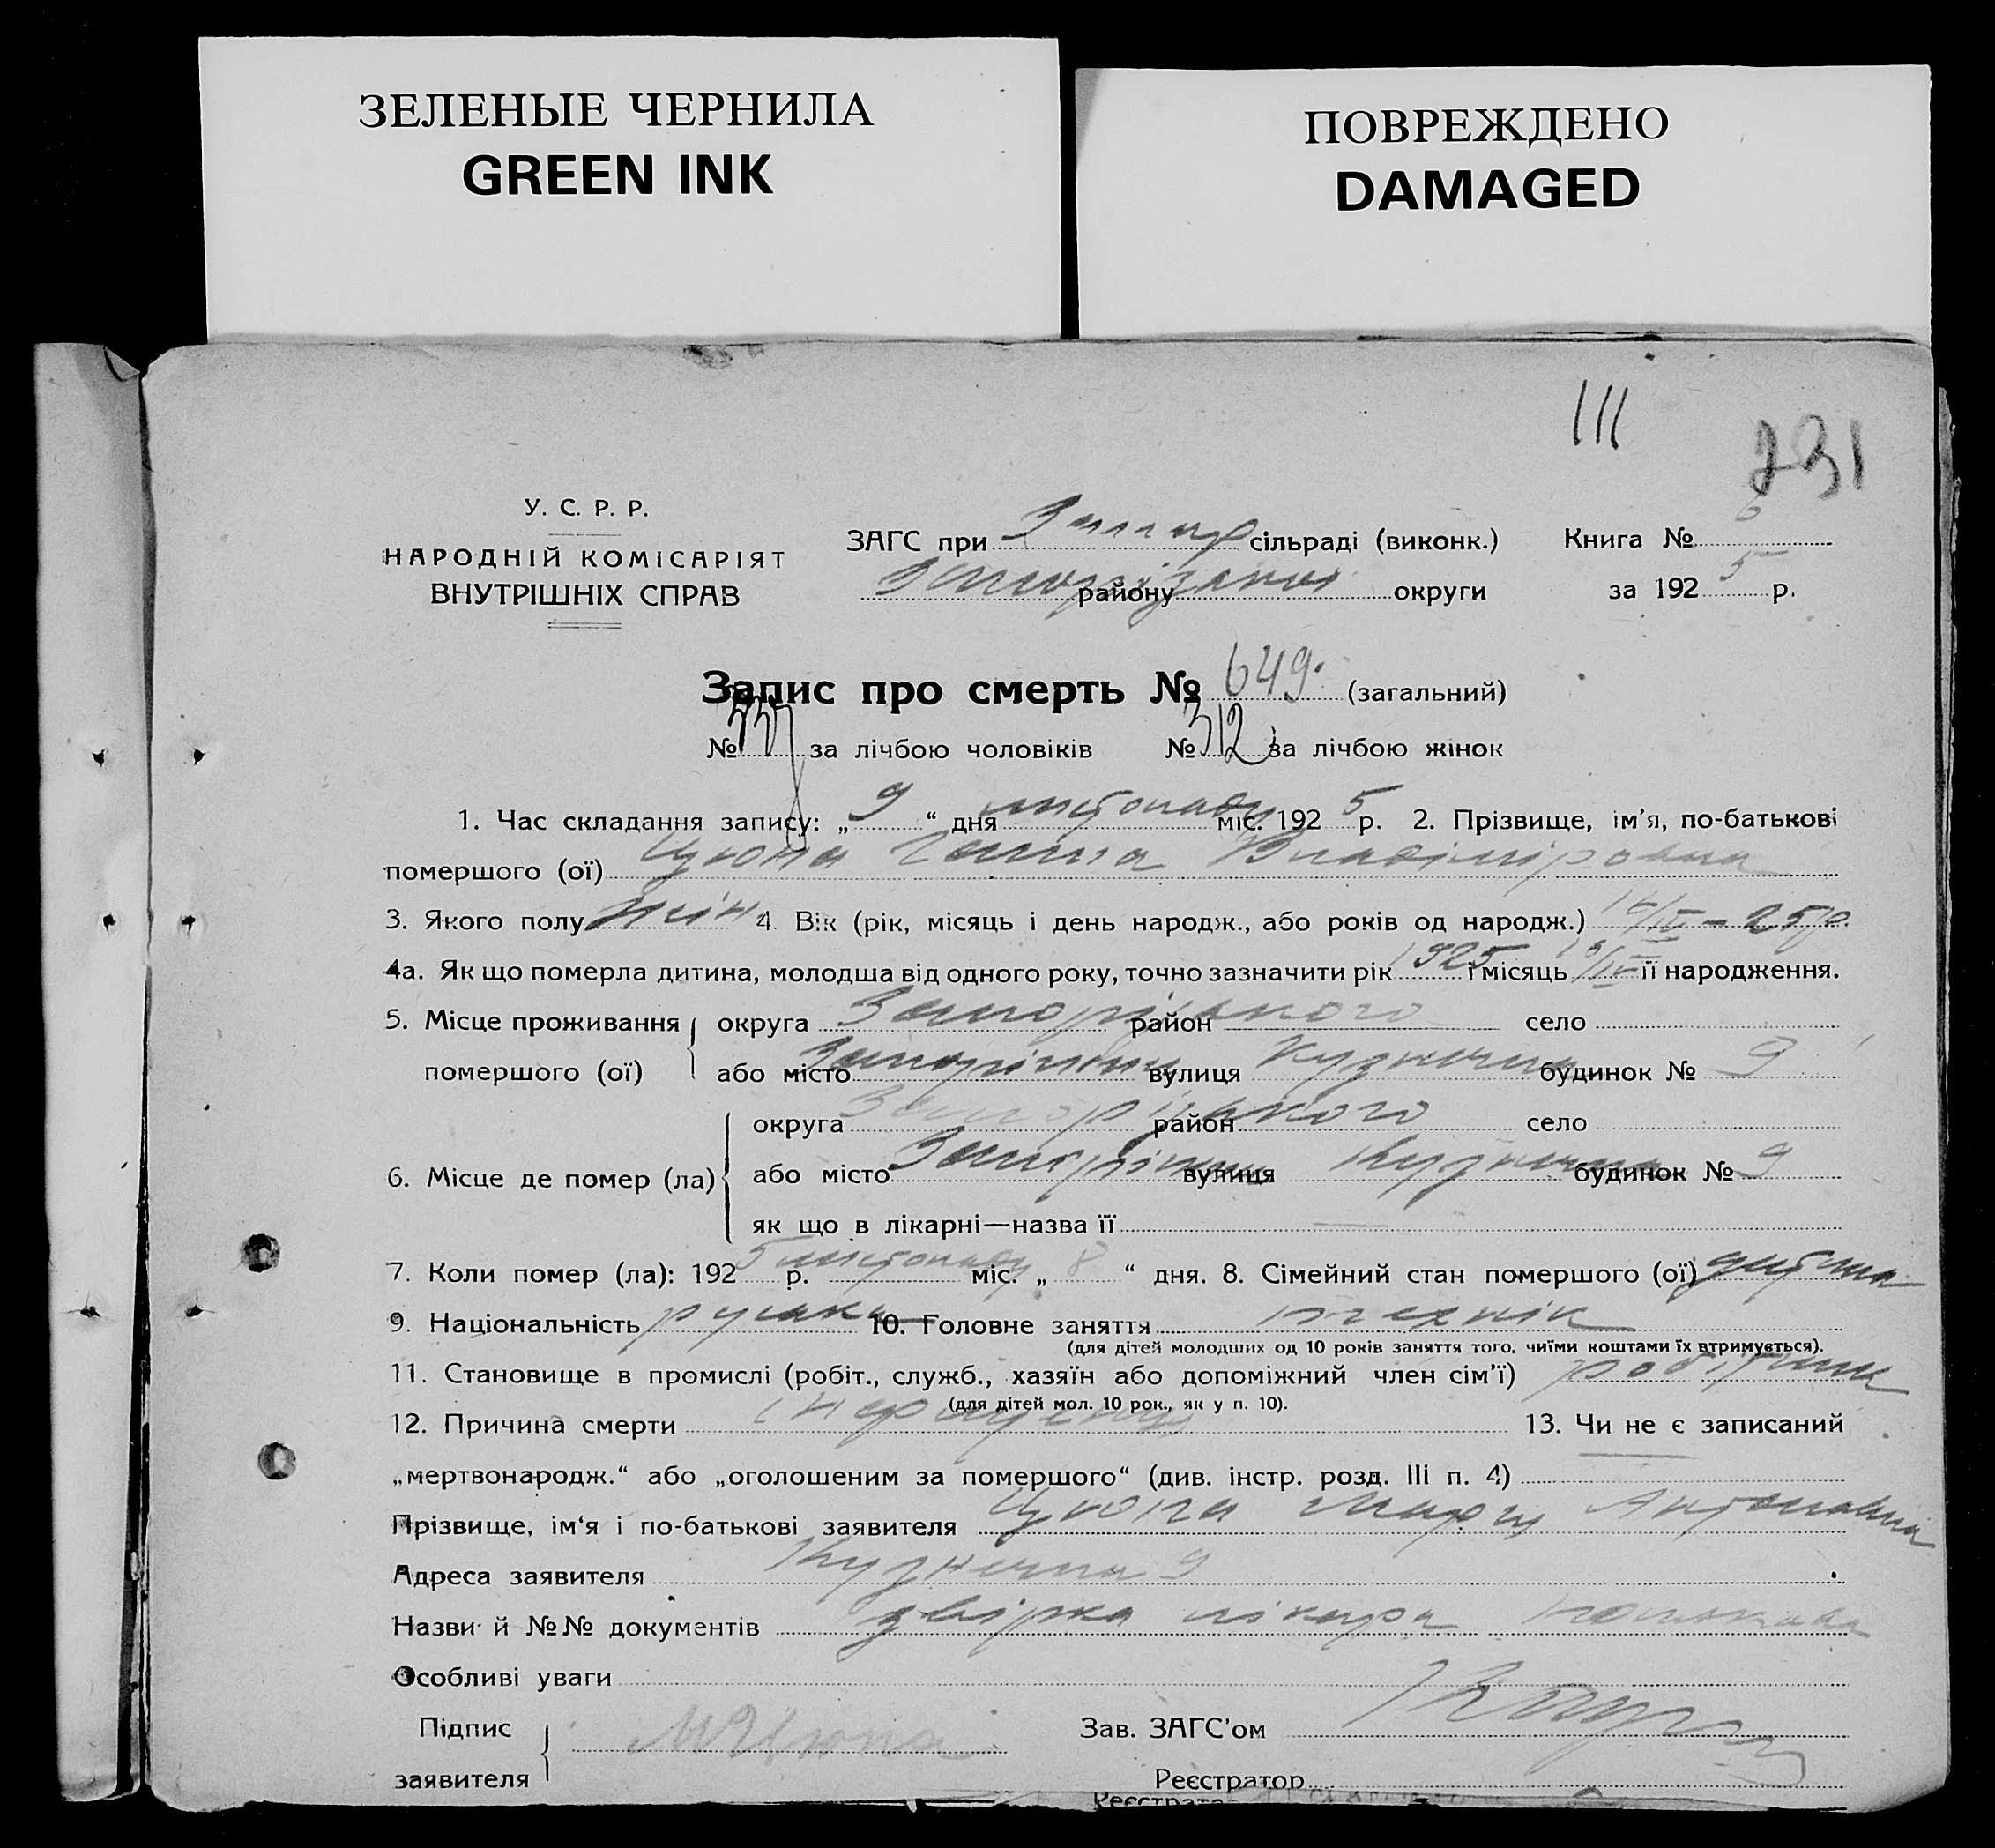 ЗЕЛЕНЫЕ ЧЕРНИЛА
GREEN INK
ПОВРЕЖДЕНО
DAMAGED
111
231
У. С. Р. Р.
НАРОДНІЙ КОМІСАРІЯТ
ВНУТРІШНІХ СПРАВ
ЗАГС при сільраді (виконк.) Книга №
району округи за 1925 р.
Запис про смерть № 649. (загальний)
№ 337 за лічбою чоловіків № 312 за лічбою жінок
1. Час складання запису: „ 9 “ дня листопаду міс. 1925 р. 2. Прізвище, ім’я, по-батькові
помершого (ої) Цюпа Галина Владіміровна
3. Якого полу жін. 4. Вік (рік, місяць і день народж., або років од народж.) /IV – 25 р.
4а. Як що померла дитина, молодша від одного року, точно зазначити рік 1925 і місяць /IV її народження.
5. Місце проживання округа Запорізького район село
помершого (ої) або місто Запоріжжя вулиця Кузнечна будинок № 9
округа Запорізького район село
6. Місце де помер (ла) або місто Запоріжжя вулиця Кузнечна будинок № 9
як що в лікарні—назва її
7. Коли помер (ла): 1925 р. листопаду міс. „ 8 “ дня. 8. Сімейний стан помершого (ої) дитина
9. Національність руська 10. Головне заняття технік
(для дітей молодших од 10 років заняття того, чиїми коштами їх втримується).
11. Становище в промислі (робіт., служб., хазяїн або допоміжний член сім’ї) робітник
(для дітей мол. 10 рок., як у п. 10).
12. Причина смерти 13. Чи не є записаний
„мертвонародж.“ або „оголошеним за помершого“ (див. інстр. розд. III п. 4)
Прізвище, ім‘я і по-батькові заявителя Цюпа Марія Антоновна
Адреса заявителя Кузнечна 9
Назви й №№ документів лікаря
Особливі уваги
Підпис Зав. ЗАГС’ом
М Цюпа
заявителя Реєстратор